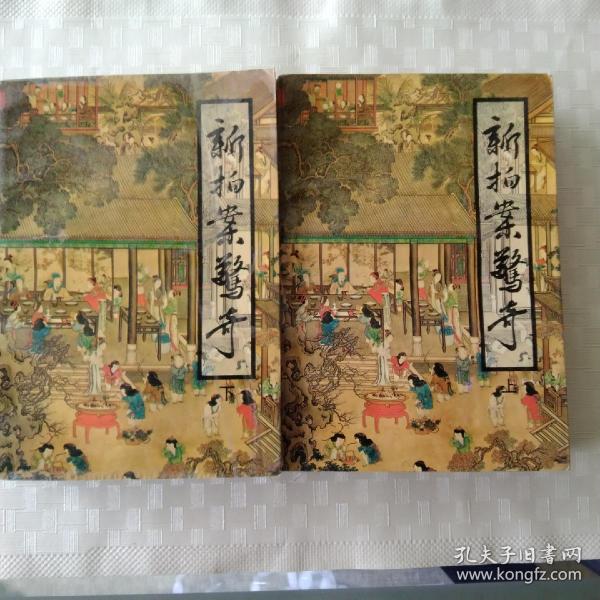 新拍案驚奇
下
新拍案驚奇
上
孔夫子旧书网
www.kongfz.com